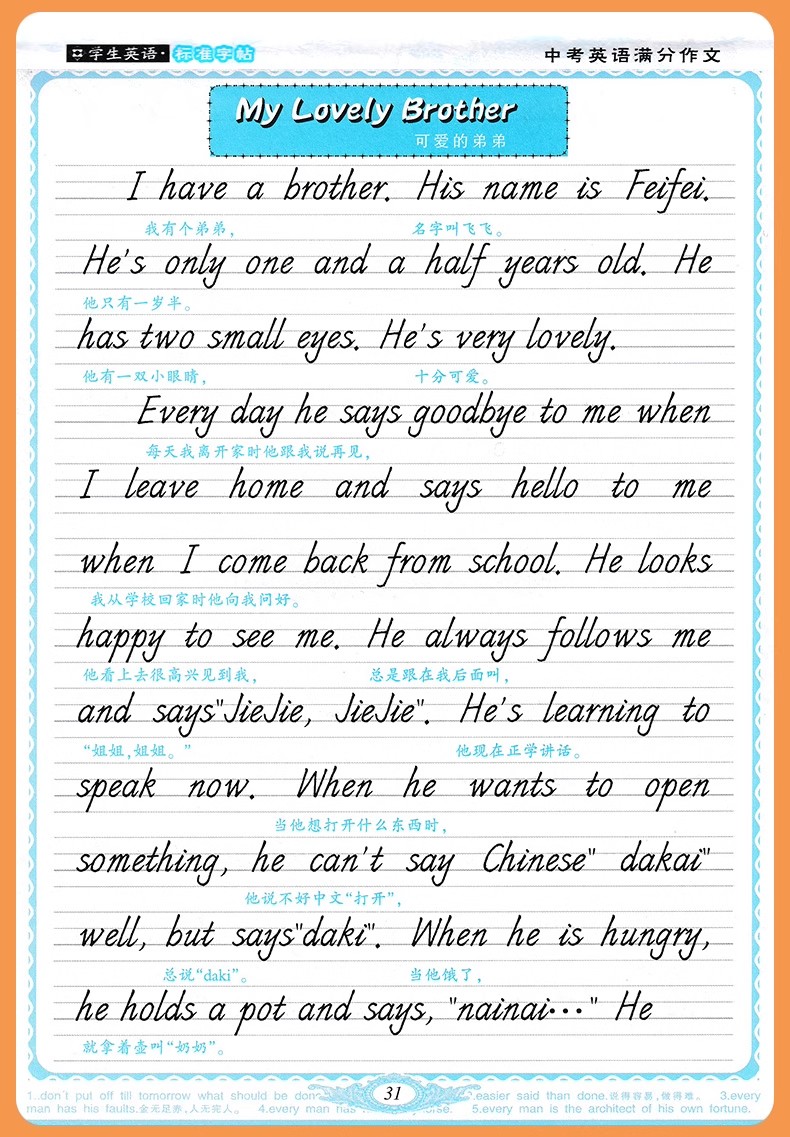 中学生英语·标准字帖
中考英语满分作文
My Lovely Brother
可爱的弟弟
I have a brother. His name is Feifei.
我有个弟弟，名字叫飞飞。
He's only one and a half years old. He
他只有一岁半。
has two small eyes. He's very lovely.
他有一双小眼睛，十分可爱。
Every day he says goodbye to me when
每天我离开家时他跟我说再见，
I leave home and says hello to me
when I come back from school. He looks
我从学校回家时他向我问好。
happy to see me. He always follows me
他看上去很高兴见到我，总是跟在我后面叫，
and says"JieJie, JieJie". He's learning to
“姐姐，姐姐。”他现在正学讲话。
speak now. When he wants to open
当他想打开什么东西时，
something, he can't say Chinese" dakai"
他说不好中文“打开”，
well, but says"daki". When he is hungry,
总说“daki”。当他饿了，
he holds a pot and says, "nainai…" He
就拿着壶叫“奶奶”。
31
1..don't put off till tomorrow what should be .easier said than done.说得容易,做得难。 3.every
man has his faults.金无足赤,人无完人。 4.every man has 5.every man is the architect of his own fortune.